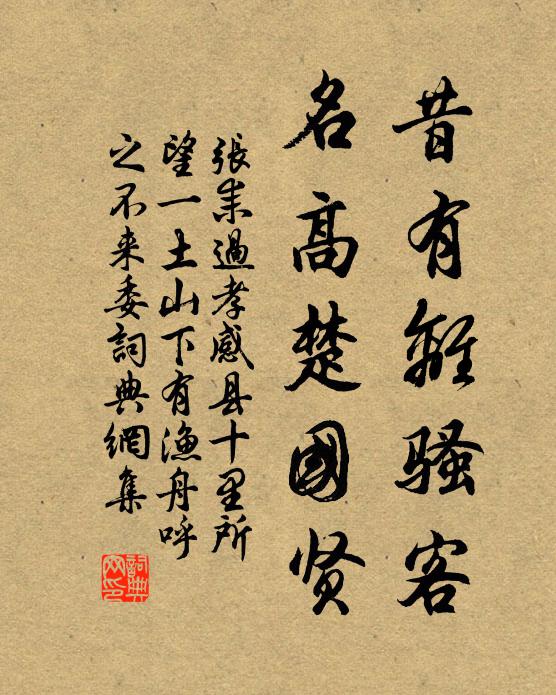 昔有離骚客
名高楚國贤
張耒過孝感县十里所
望一土山下有渔舟呼
之不来委詞典網集
詞典
网印